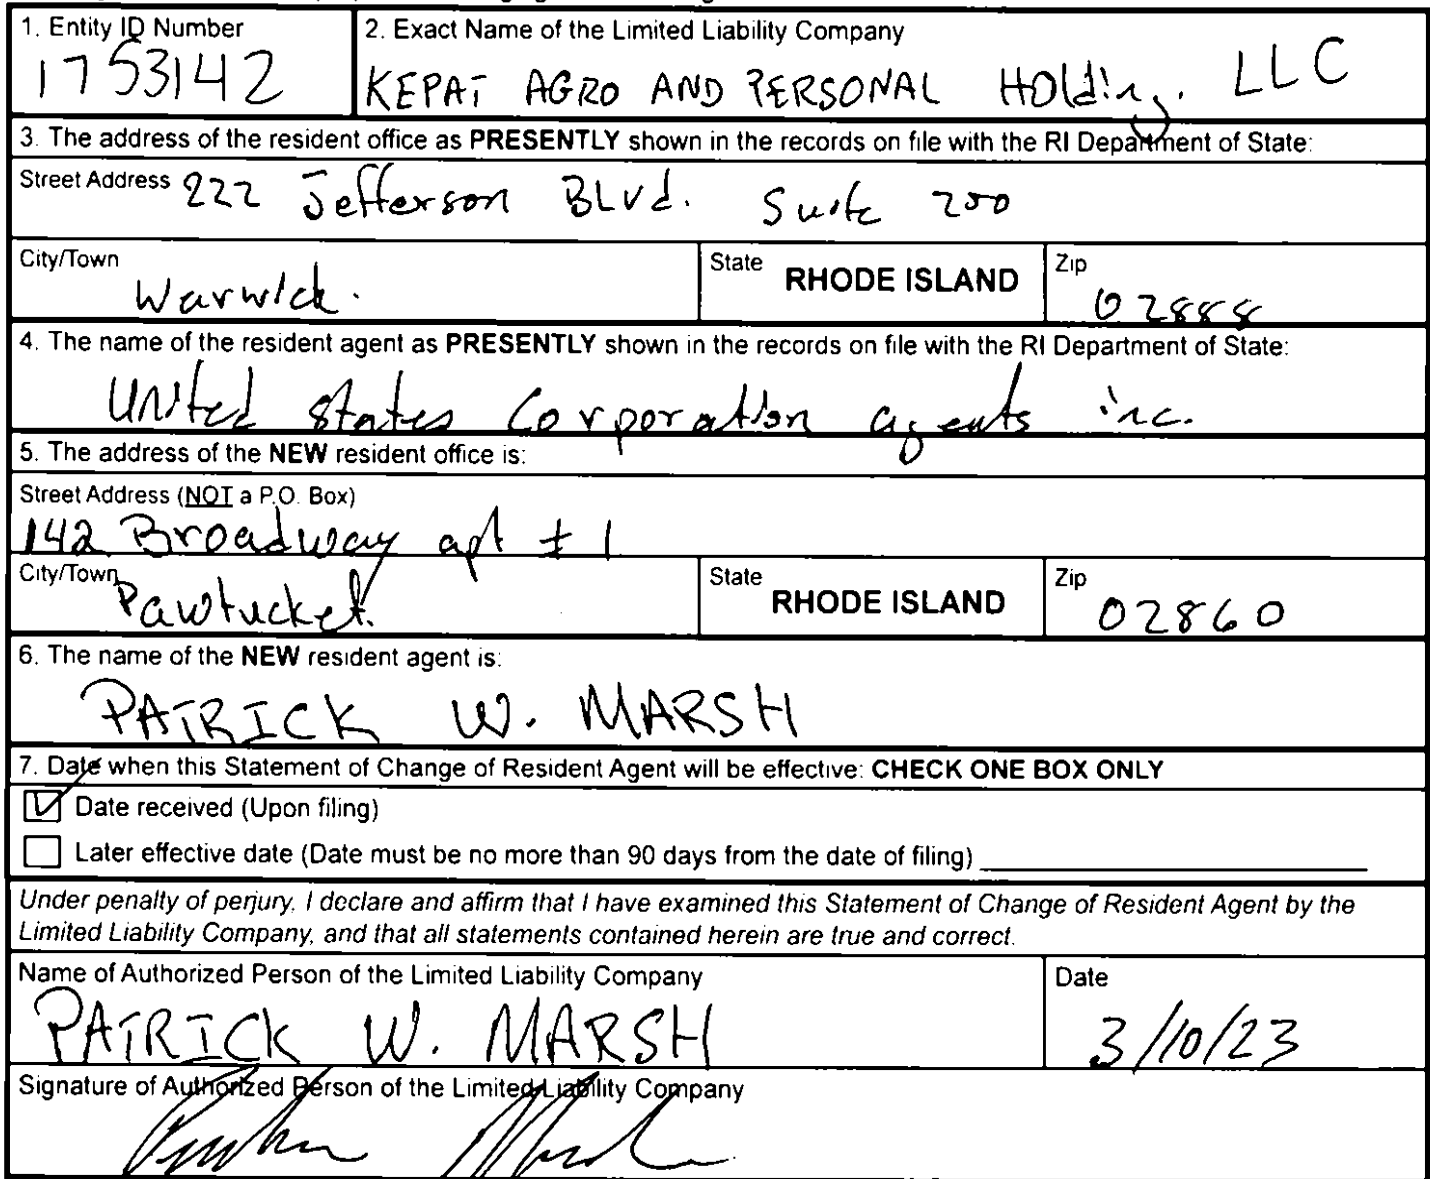 1. Entity ID Number
1753142
2. Exact Name of the Limited Liability Company
KEPAT AGRO AND PERSONAL Holding. LLC
3. The address of the resident office as PRESENTLY shown in the records on file with the RI Department of State:
Street Address 222 Jefferson BLvd. Suite 200
City/Town
Warwick.
State RHODE ISLAND
Zip
02888
4. The name of the resident agent as PRESENTLY shown in the records on file with the RI Department of State:
United States Corporation agents inc.
5. The address of the NEW resident office is:
Street Address (NOT a P.O. Box)
142 Broadway apt # 1
City/Town
Pawtucket.
State
RHODE ISLAND
Zip
02860
6. The name of the NEW resident agent is:
PATRICK W. MARSH
7. Date when this Statement of Change of Resident Agent will be effective: CHECK ONE BOX ONLY
Date received (Upon filing)
Later effective date (Date must be no more than 90 days from the date of filing)
Under penalty of perjury, I declare and affirm that I have examined this Statement of Change of Resident Agent by the
Limited Liability Company, and that all statements contained herein are true and correct.
Name of Authorized Person of the Limited Liability Company
PATRICK W. MARSH
Date
3/10/23
Signature of Authorized Person of the Limited Liability Company